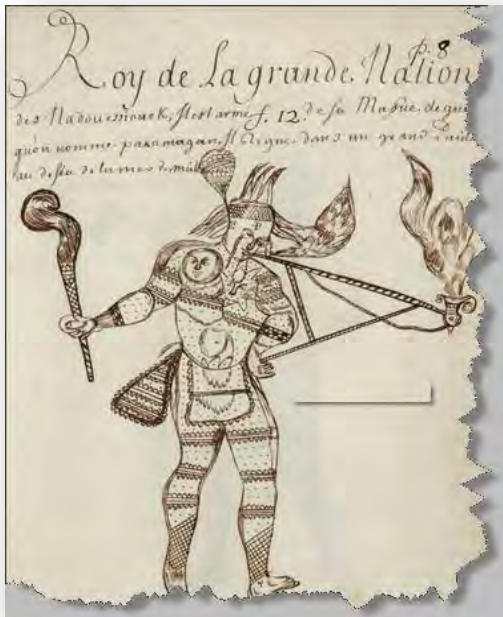 p. 8
Roy de La grande Nation
des Nadouessiouek, Il est armé f. 12. de sa Masue de
qu'on nomme pakamagan. Il Regne dans un grand
au dela de la mer